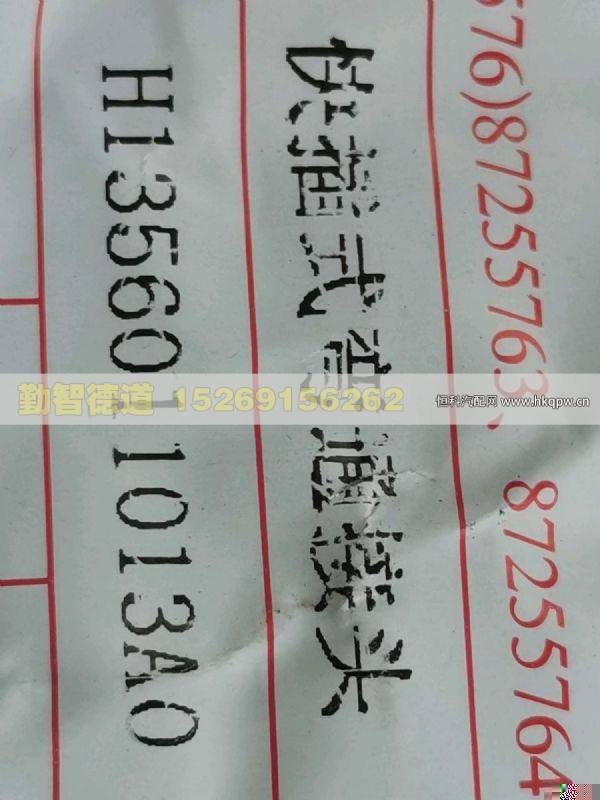 576)87255763、 87255764
快插式弯通接头
H1356011013A0
勤智德道 15269156262
恒科汽配网 www.hkqpw.cn